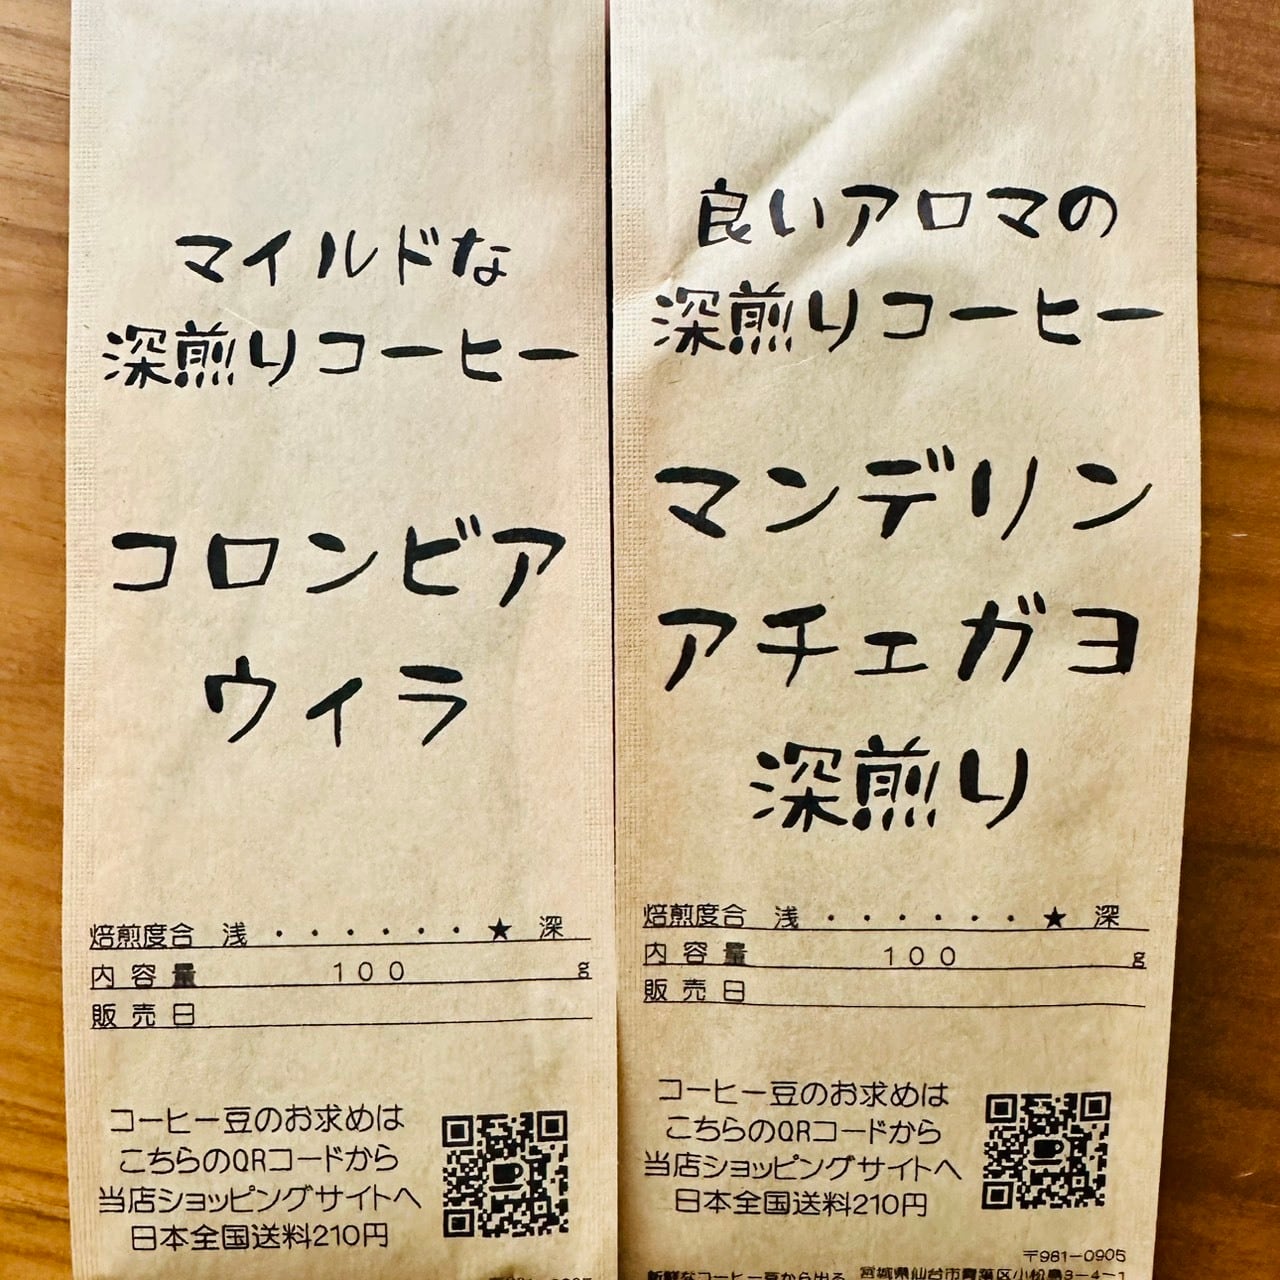 マイルドな
深煎りコーヒー
コロンビア
ウィラ
焙煎度合 浅 ・・・・・・★ 深
内容量 100 g
販売日
コーヒー豆のお求めは
こちらのQRコードから
当店ショッピングサイトへ
日本全国送料210円
良いアロマの
深煎りコーヒー
マンデリン
アチェガヨ
深煎り
焙煎度合 浅 ・・・・・・★ 深
内容量 100 g
販売日
コーヒー豆のお求めは
こちらのQRコードから
当店ショッピングサイトへ
日本全国送料210円
〒981-0905
新鮮なコーヒー豆から出る 宮城県仙台市青葉区小松島3-4-1